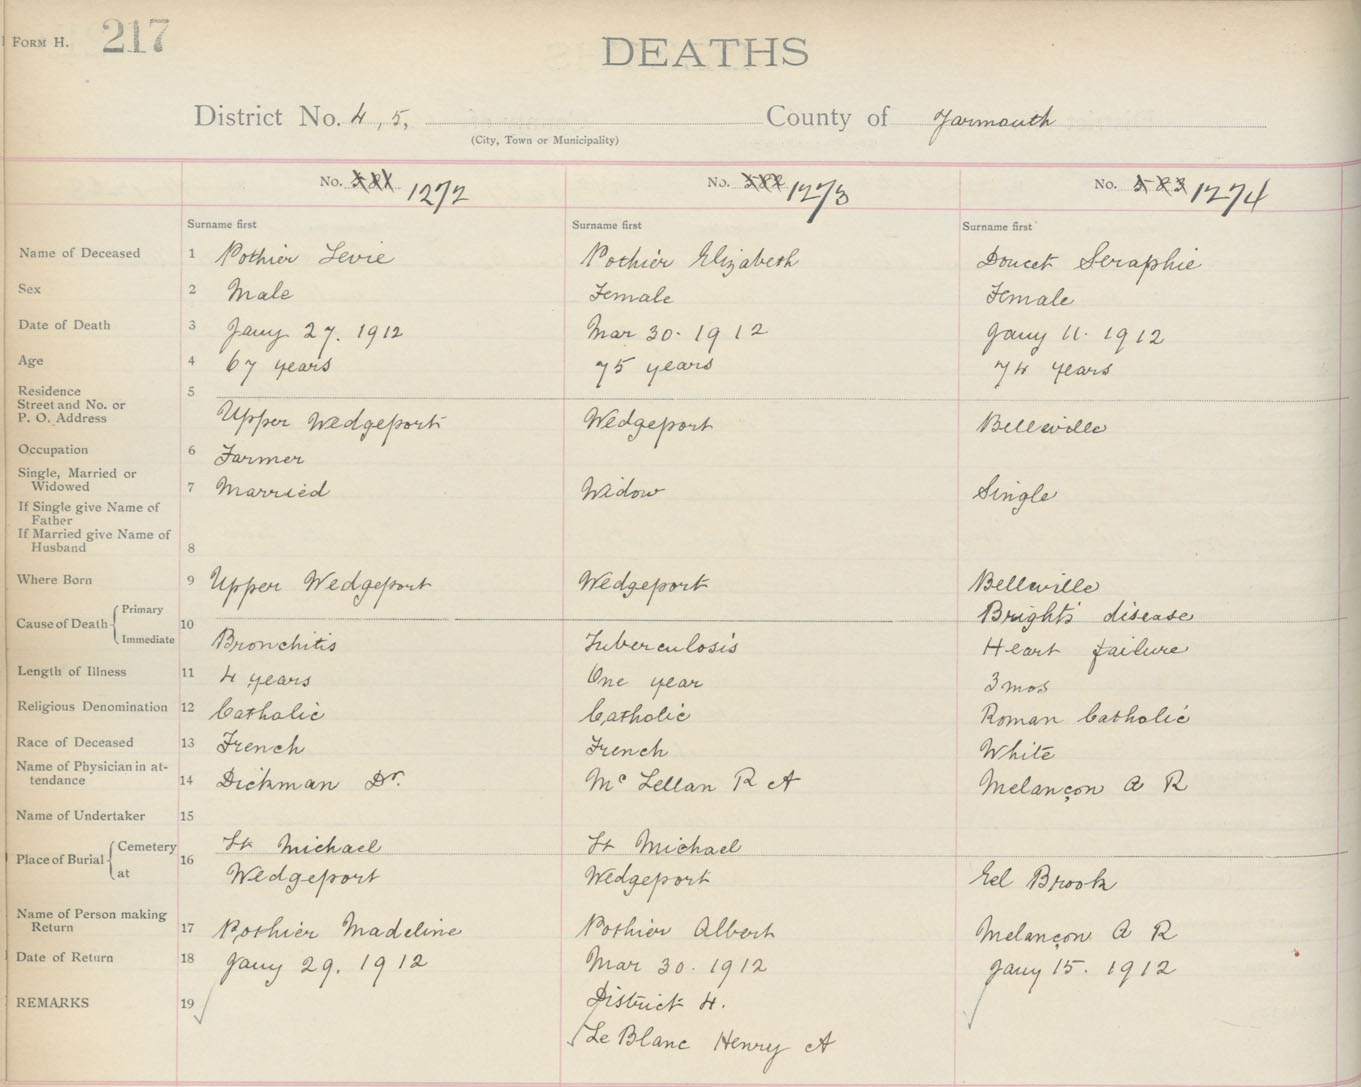 FORM H. 217
DEATHS
District No. 4, 5, County of Yarmouth
(City, Town or Municipality)
No. 581 1272 No. 582 1273 No. 583 1274
Surname first Surname first Surname first
Name of Deceased 1 Pothier Levie Pothier Elizabeth Doucet Seraphie
Sex 2 Male Female Female
Date of Death 3 Jany 27. 1912 Mar 30. 1912 Jany 11. 1912
Age 4 67 years 75 years 74 years
Residence 5
Street and No. or
P. O. Address Upper Wedgeport Wedgeport Belleville
Occupation 6 Farmer
Single, Married or
Widowed 7 Married Widow Single
If Single give Name of
Father
If Married give Name of
Husband 8
Where Born 9 Upper Wedgeport Wedgeport Belleville
Cause of Death 10 Primary Bright's disease
Immediate Bronchitis Tuberculosis Heart failure
Length of Illness 11 4 years One year 3 mos
Religious Denomination 12 Catholic Catholic Roman Catholic
Race of Deceased 13 French French White
Name of Physician in at-
tendance 14 Dickman Dr. McLellan R A Melançon A R
Name of Undertaker 15
Place of Burial 16 Cemetery St Michael St Michael
at Wedgeport Wedgeport Eel Brook
Name of Person making
Return 17 Pothier Madeline Pothier Albert Melançon A R
Date of Return 18 Jany 29. 1912 Mar 30. 1912 Jany 15. 1912
REMARKS 19 District 4.
Le Blanc Henry A